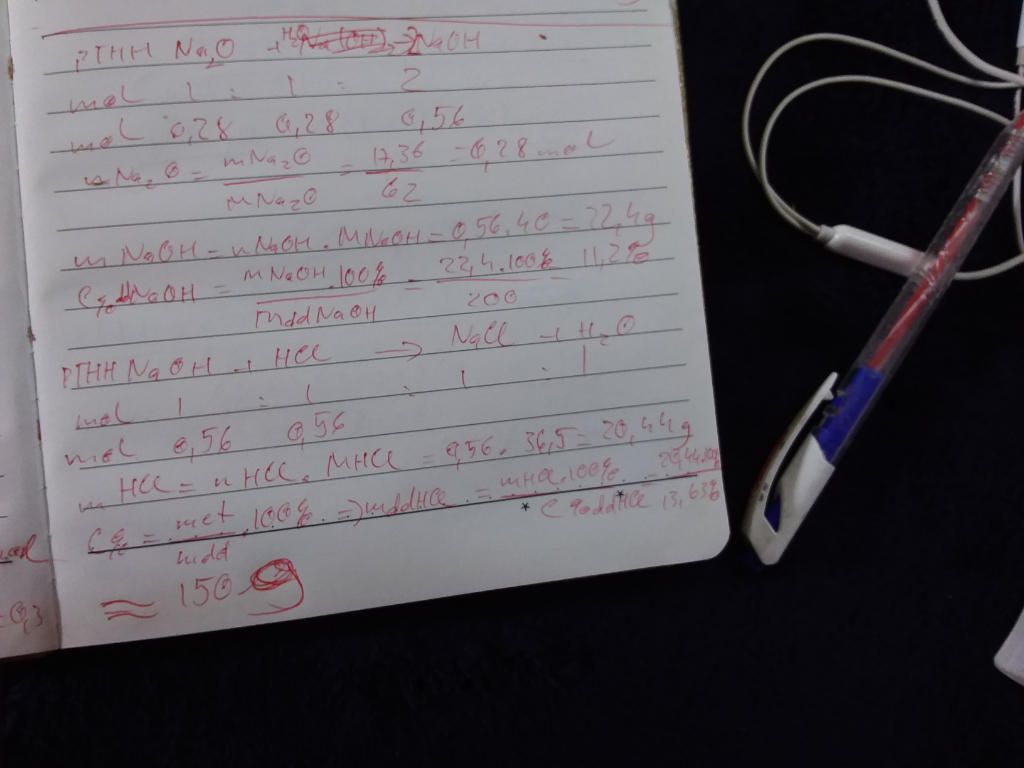 PTHH Na2O + H2O → 2NaOH
mol 1 : 1 : 2
mol 0,28 0,28 0,56
nNa2O = mNa2O / MNa2O = 17,36 / 62 = 0,28 mol
m NaOH = nNaOH . MNaOH = 0,56 . 40 = 22,4g
C%ddNaOH = mNaOH . 100% / mddNaOH = 22,4 . 100% / 200 = 11,2%
PTHH NaOH + HCl → NaCl + H2O
mol 1 : 1 : 1 : 1
mol 0,56 0,56
m HCl = n HCl . MHCl = 0,56 . 36,5 = 20,44g
C% = mct / mdd . 100% => mddHCl = mHCl . 100% / C%ddHCl = 20,44.100% / 13,63%
≈ 150 g
= 0,3